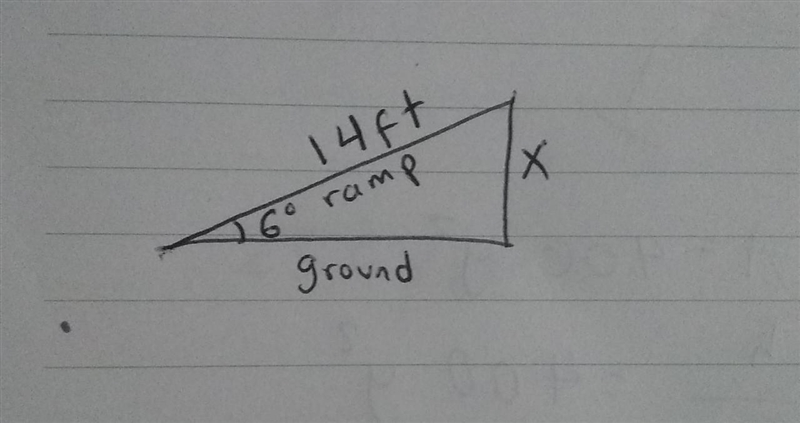 14ft
ramp
6°
x
ground